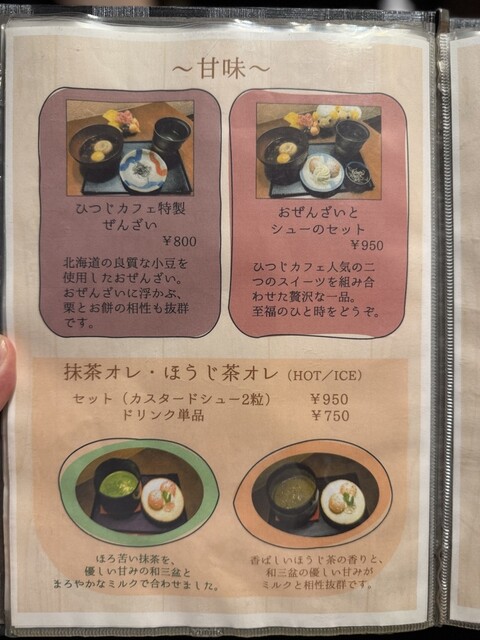 ～甘味～
ひつじカフェ特製
ぜんざい
￥800
北海道の良質な小豆を
使用したおぜんざい。
おぜんざいに浮かぶ、
栗とお餅の相性も抜群
です。
おぜんざいと
シューのセット
￥950
ひつじカフェ人気の二
つのスイーツを組み合
わせた贅沢な一品。
至福のひと時をどうぞ。
抹茶オレ・ほうじ茶オレ（HOT／ICE）
セット（カスタードシュー2粒） ￥950
ドリンク単品 ￥750
ほろ苦い抹茶を、
優しい甘みの和三盆と
まろやかなミルクで合わせました。
香ばしいほうじ茶の香りと、
和三盆の優しい甘みが
ミルクと相性抜群です。